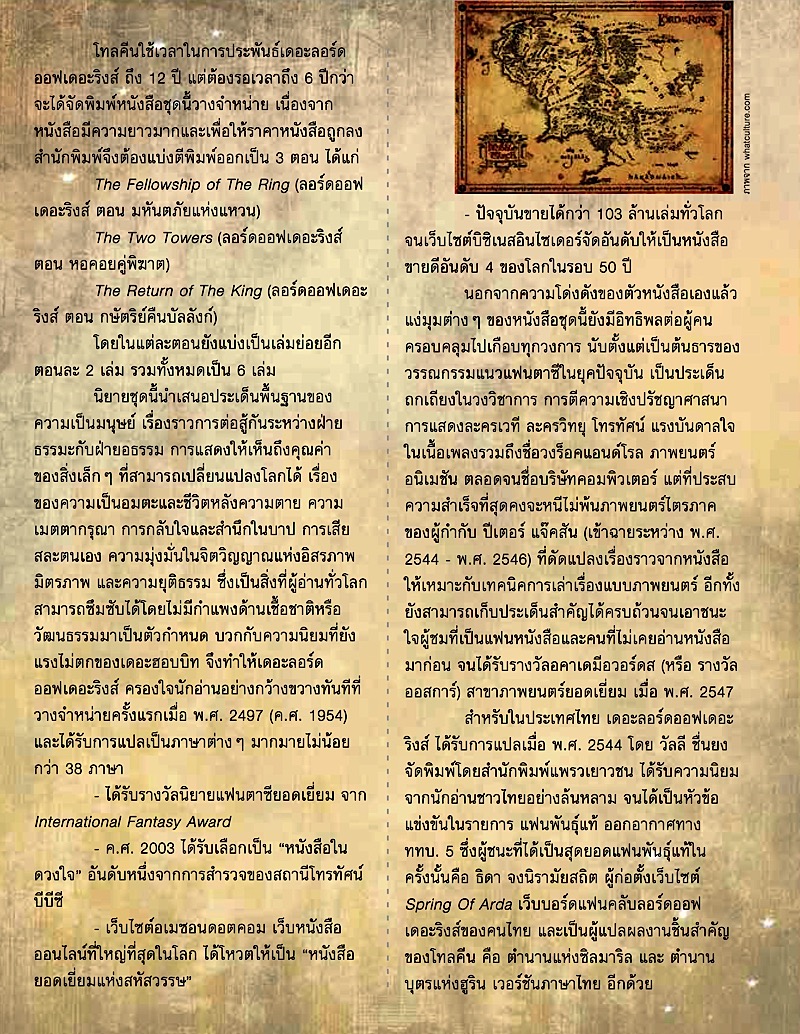 โทลคีนใช้เวลาในการประพันธ์เดอะลอร์ด
ออฟเดอะริงส์ ถึง 12 ปี แต่ต้องรอเวลาถึง 6 ปีกว่า
จะได้จัดพิมพ์หนังสือชุดนี้วางจำหน่าย เนื่องจาก
หนังสือมีความยาวมากและเพื่อให้ราคาหนังสือถูกลง
สำนักพิมพ์จึงต้องแบ่งตีพิมพ์ออกเป็น 3 ตอน ได้แก่
The Fellowship of The Ring (ลอร์ดออฟ
เดอะริงส์ ตอน มหันตภัยแห่งแหวน)
The Two Towers (ลอร์ดออฟเดอะริงส์
ตอน หอคอยคู่พิฆาต)
The Return of The King (ลอร์ดออฟเดอะ
ริงส์ ตอน กษัตริย์คืนบัลลังก์)
โดยในแต่ละตอนยังแบ่งเป็นเล่มย่อยอีก
ตอนละ 2 เล่ม รวมทั้งหมดเป็น 6 เล่ม
นิยายชุดนี้นำเสนอประเด็นพื้นฐานของ
ความเป็นมนุษย์ เรื่องราวการต่อสู้กันระหว่างฝ่าย
ธรรมะกับฝ่ายอธรรม การแสดงให้เห็นถึงคุณค่า
ของสิ่งเล็ก ๆ ที่สามารถเปลี่ยนแปลงโลกได้ เรื่อง
ของความเป็นอมตะและชีวิตหลังความตาย ความ
เมตตากรุณา การกลับใจและสำนึกในบาป การเสีย
สละตนเอง ความมุ่งมั่นในจิตวิญญาณแห่งอิสรภาพ
มิตรภาพ และความยุติธรรม ซึ่งเป็นสิ่งที่ผู้อ่านทั่วโลก
สามารถซึมซับได้โดยไม่มีกำแพงด้านเชื้อชาติหรือ
วัฒนธรรมมาเป็นตัวกำหนด บวกกับความนิยมที่ยัง
แรงไม่ตกของเดอะฮอบบิท จึงทำให้เดอะลอร์ด
ออฟเดอะริงส์ ครองใจนักอ่านอย่างกว้างขวางทันทีที่
วางจำหน่ายครั้งแรกเมื่อ พ.ศ. 2497 (ค.ศ. 1954)
และได้รับการแปลเป็นภาษาต่าง ๆ มากมายไม่น้อย
กว่า 38 ภาษา
- ได้รับรางวัลนิยายแฟนตาซียอดเยี่ยม จาก
International Fantasy Award
- ค.ศ. 2003 ได้รับเลือกเป็น “หนังสือใน
ดวงใจ” อันดับหนึ่งจากการสำรวจของสถานีโทรทัศน์
บีบีซี
- เว็บไซต์อเมซอนดอตคอม เว็บหนังสือ
ออนไลน์ที่ใหญ่ที่สุดในโลก ได้โหวตให้เป็น “หนังสือ
ยอดเยี่ยมแห่งสหัสวรรษ”
LORD OF THE RINGS
ภาพจาก whatculture.com
- ปัจจุบันขายได้กว่า 103 ล้านเล่มทั่วโลก
จนเว็บไซต์บิซิเนสอินไซเดอร์จัดอันดับให้เป็นหนังสือ
ขายดีอันดับ 4 ของโลกในรอบ 50 ปี
นอกจากความโด่งดังของตัวหนังสือเองแล้ว
แง่มุมต่าง ๆ ของหนังสือชุดนี้ยังมีอิทธิพลต่อผู้คน
ครอบคลุมไปเกือบทุกวงการ นับตั้งแต่เป็นต้นธารของ
วรรณกรรมแนวแฟนตาซีในยุคปัจจุบัน เป็นประเด็น
ถกเถียงในวงวิชาการ การตีความเชิงปรัชญาศาสนา
การแสดงละครเวที ละครวิทยุ โทรทัศน์ แรงบันดาลใจ
ในเนื้อเพลงรวมถึงชื่อวงร็อคแอนด์โรล ภาพยนตร์
อนิเมชัน ตลอดจนชื่อบริษัทคอมพิวเตอร์ แต่ที่ประสบ
ความสำเร็จที่สุดคงจะหนีไม่พ้นภาพยนตร์ไตรภาค
ของผู้กำกับ ปีเตอร์ แจ๊คสัน (เข้าฉายระหว่าง พ.ศ.
2544 - พ.ศ. 2546) ที่ดัดแปลงเรื่องราวจากหนังสือ
ให้เหมาะกับเทคนิคการเล่าเรื่องแบบภาพยนตร์ อีกทั้ง
ยังสามารถเก็บประเด็นสำคัญได้ครบถ้วนจนเอาชนะ
ใจผู้ชมที่เป็นแฟนหนังสือและคนที่ไม่เคยอ่านหนังสือ
มาก่อน จนได้รับรางวัลอคาเดมีอวอร์ดส (หรือ รางวัล
ออสการ์) สาขาภาพยนตร์ยอดเยี่ยม เมื่อ พ.ศ. 2547
สำหรับในประเทศไทย เดอะลอร์ดออฟเดอะ
ริงส์ ได้รับการแปลเมื่อ พ.ศ. 2544 โดย วัลลี ชื่นยง
จัดพิมพ์โดยสำนักพิมพ์แพรวเยาวชน ได้รับความนิยม
จากนักอ่านชาวไทยอย่างล้นหลาม จนได้เป็นหัวข้อ
แข่งขันในรายการ แฟนพันธุ์แท้ ออกอากาศทาง
ททบ. 5 ซึ่งผู้ชนะที่ได้เป็นสุดยอดแฟนพันธุ์แท้ใน
ครั้งนั้นคือ ธิดา จงนิรามัยสถิต ผู้ก่อตั้งเว็บไซต์
Spring Of Arda เว็บบอร์ดแฟนคลับลอร์ดออฟ
เดอะริงส์ของคนไทย และเป็นผู้แปลผลงานชิ้นสำคัญ
ของโทลคีน คือ ตำนานแห่งซิลมาริล และ ตำนาน
บุตรแห่งฮูริน เวอร์ชันภาษาไทย อีกด้วย